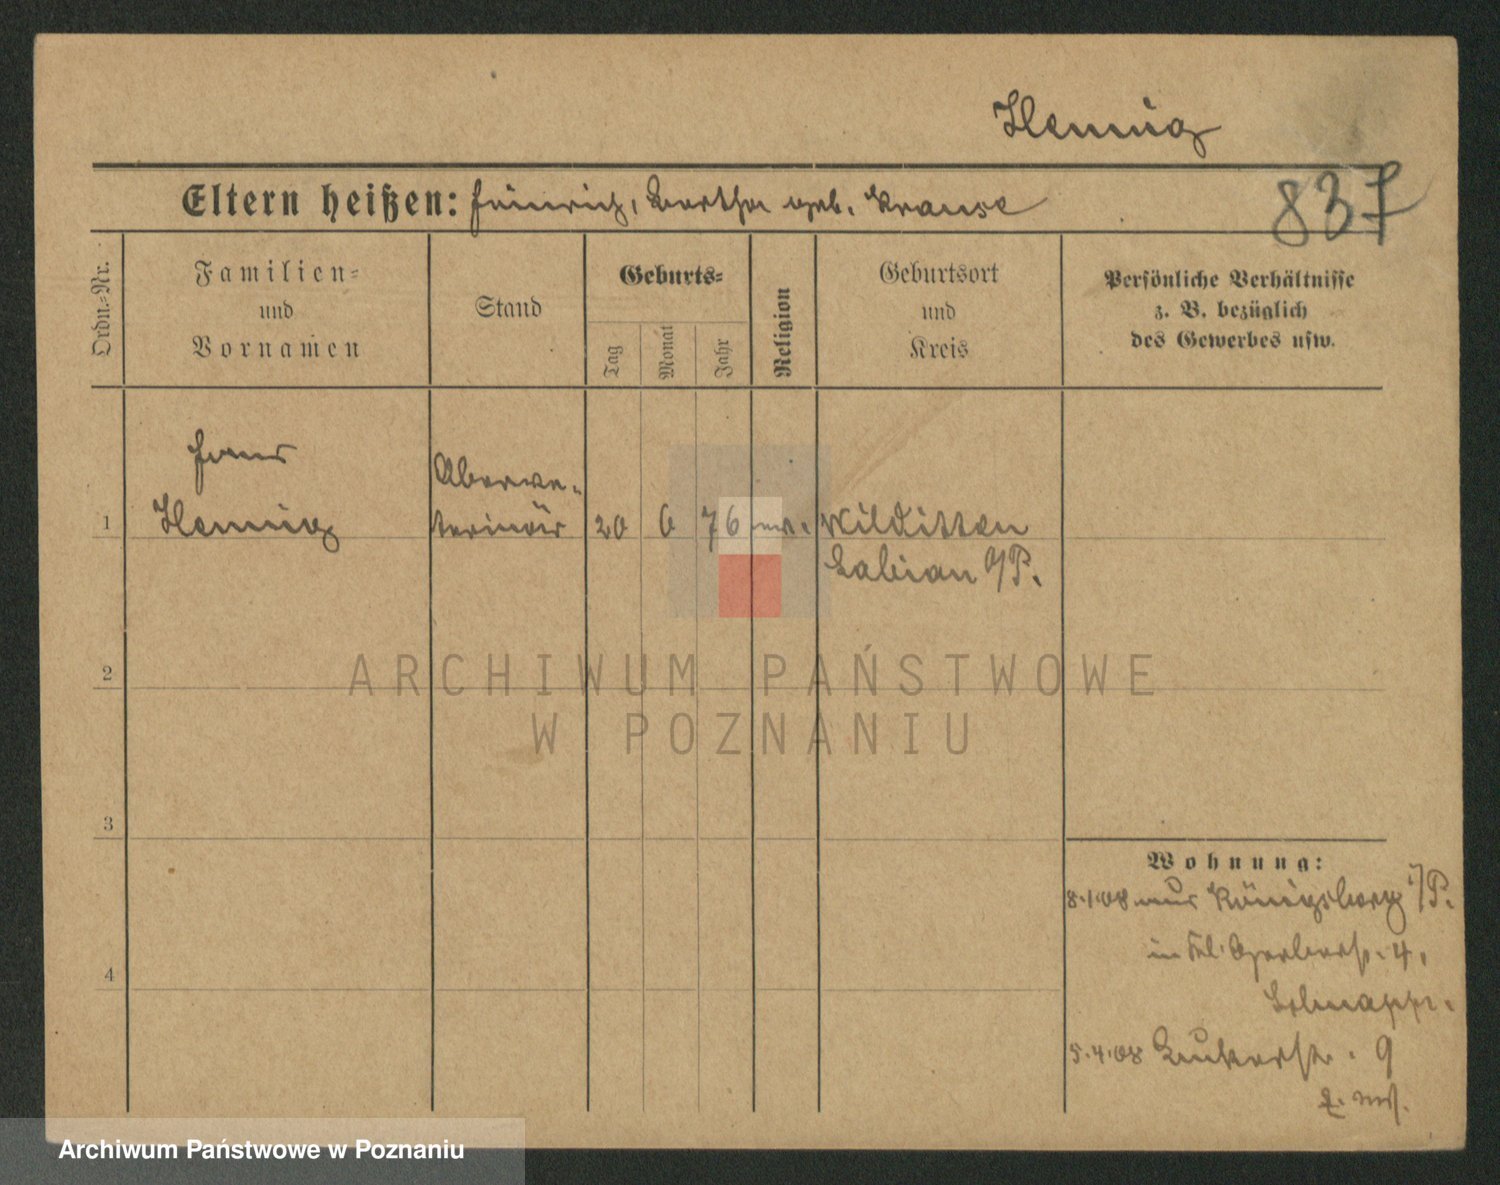 Hennig
837
Eltern heißen: Heinrich, Bertha geb. Krause
Ordn.-Nr.
Familien-
und
Vornamen
Stand
Geburts-
Tag
Monat
Jahr
Religion
Geburtsort
und
Kreis
Persönliche Verhältnisse
z. B. bezüglich
des Gewerbes usw.
1
Hennig
Oberve-
terinär
20
6
76
ev.
Wilditten
Labiau O/P.
2
ARCHIWUM PAŃSTWOWE
W POZNANIU
3
Wohnung:
8.1.08 aus Königsberg i/P.
4,
4
5.4.08 9
Archiwum Państwowe w Poznaniu